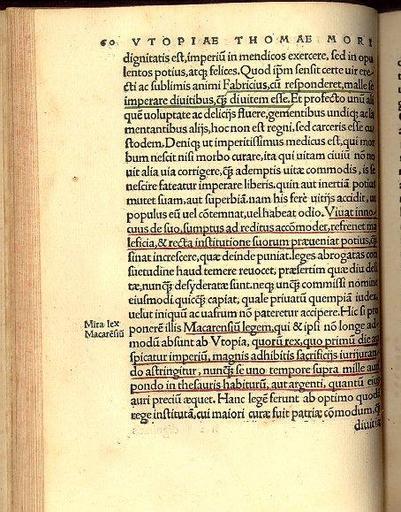 60 VTOPIAE THOMAE MORI
dignitatis est, imperiū in mendicos exercere, sed in opu
lentos potius, atq; felices. Quod ip̄m sensit certe uir ere-
cti ac sublimis animi Fabricius, cū responderet, malle se
imperare diuitibus, q̄ diuitem esse. Et profecto unū ali
quē uoluptate ac delicijs fluere, gementibus undiq; ac la
mentantibus alijs, hoc non est regni, sed carceris esse cu
stodem. Deniq; ut imperitissimus medicus est, qui mor
bum nescit nisi morbo curare, ita qui uitam ciuiū nō no
uit alia uia corrigere, q̄ ademptis uitæ commodis, is se
nescire fateatur imperare liberis. quin aut inertiā potius
mutet suam, aut superbiā. nam his ferè uitijs accidit, ut
populus eū uel cōtemnat, uel habeat odio. Viuat inno
cuus de suo, sumptus ad reditus accōmodet, refrenet ma
leficia, & recta institutione suorum præueniat potius, q̄
sinat increscere, quæ deinde puniat. leges abrogatas con
suetudine haud temere reuocet, præsertim quæ diu deli
tæ, nunq̄ desyderatæ sunt. neq; unq̄ commissi nomine
eiusmodi quicq̄ capiat, quale priuatū quempiā iudex,
uelut iniquū ac uafrum nō pateretur accipere. Hic si pro
ponerē illis Macarensiū legem, qui & ipsi nō longe ad-
modū absunt ab Vtopia, quorū rex, quo primū die au
spicatur imperiū, magnis adhibitis sacrificijs iurijuran-
do astringitur, nunq̄ se uno tempore supra mille auri
pondo in thesauris habiturū, aut argenti, quantū eius
auri preciū æquet. Hanc legē ferunt ab optimo quodā
rege institutā, cui maiori curæ fuit patriæ cōmodum, q̄
diuitiæ
Mira lex
Macarēsiū